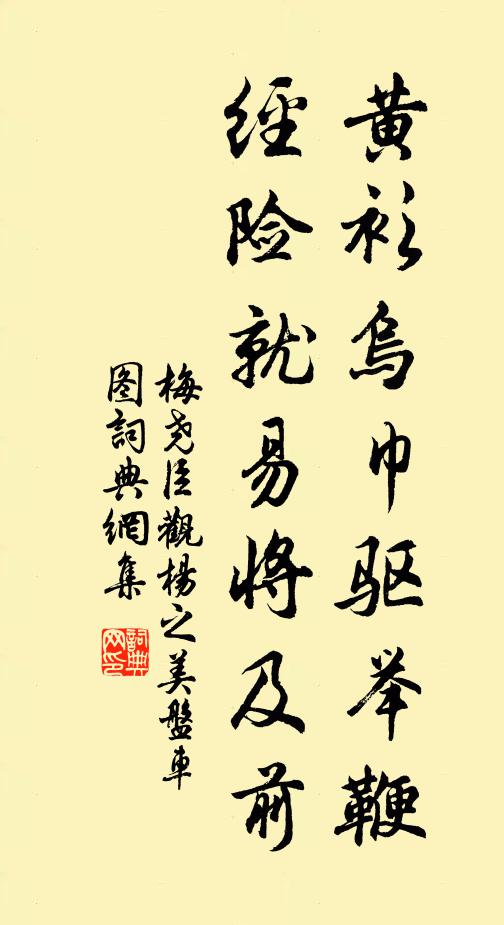 黄衫乌巾驱举鞭
经险就易将及前
梅尧臣觀楊之美盤車
图詞典網集
詞典网印